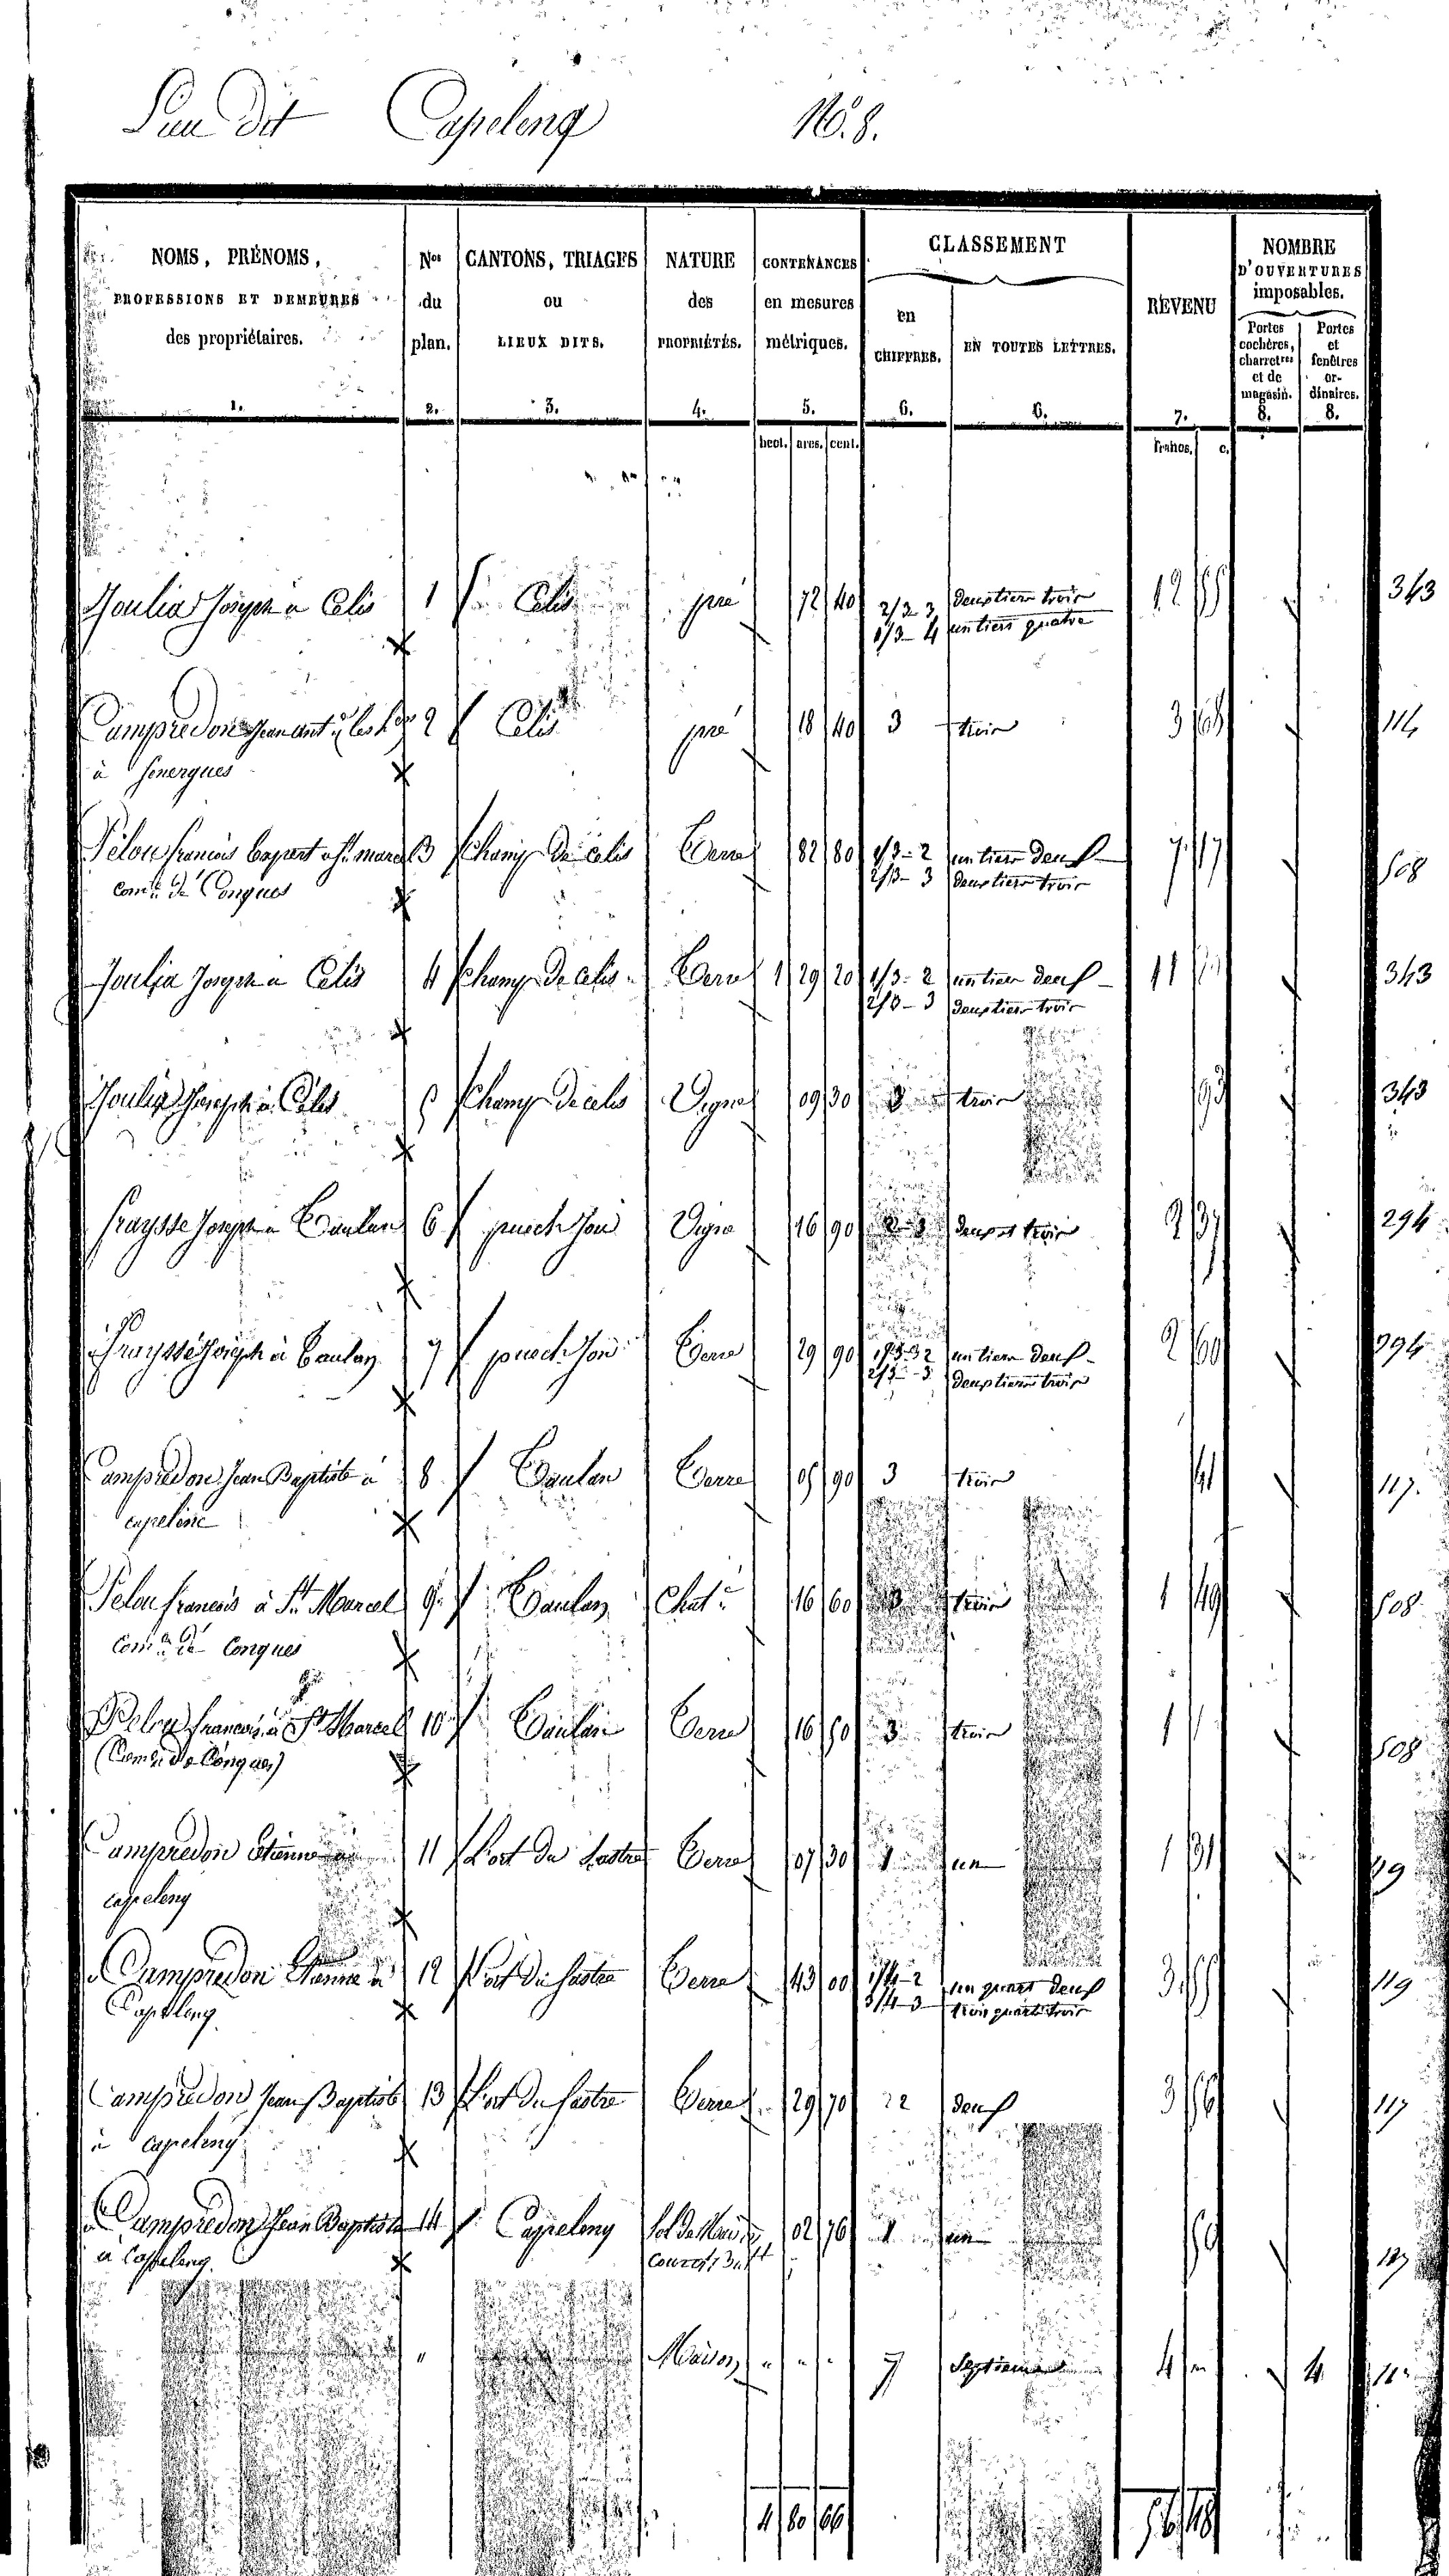 Lieu Dit Capeleng No. 8.
NOMS, PRÉNOMS, PROFESSIONS ET DEMEURES des propriétaires. 1.
Nos du plan. 2.
CANTONS, TRIAGES ou LIEUX DITS. 3.
NATURE des PROPRIÉTÉS. 4.
CONTENANCES en mesures métriques. 5.
CLASSEMENT
en CHIFFRES. 6.
EN TOUTES LETTRES. 6.
REVENU 7.
NOMBRE D'OUVERTURES imposables.
Portes cochères, charretres et de magasin. 8.
Portes et fenêtres ordinaires. 8.
hect. ares. cent. francs. c.
Joulia Joseph a Celis 1 Celis pré 72 40 2/3 3 deux tiers trois 12 343
1/3 - 4 un tiers quatre
Campredon Jean ant 2 Celis pré 18 40 3 trois 3 68 114
à Senergues
Pelou francois 3 champ De celis Terre 82 80 1/3 - 2 un tiers deux 7 17 508
Comne de Conques 2/3 - 3 deux tiers trois
Joulia Joseph a Celis 4 champ De celis Terre 1 29 20 1/3 - 2 un tiers deux 11 343
2/3 - 3 deux tiers trois
Joulia Joseph a Celis 5 champ De celis Vigne 09 30 3 trois 93 343
Fraysse Joseph a Caulan 6 puech Vigne 16 90 2 3 deux et trois 2 37 294
Fraysse Joseph à Caulan 7 puech Terre 29 90 1/3 2 un tiers deux 2 60 294
2/3 - 3 deux tiers trois
Campredon Jean Baptiste a 8 Caulan Terre 05 90 3 trois 41 117.
capeleng
Pelou francois à St. Marcel 9. Caulan Chat. 16 60 3 trois 1 49 508
Comne de Conques
Pelou francois à St Marcel 10 Caulan Terre 16 50 3 trois 1 508
(Comne de Conques)
Campredon Etienne a 11 L'ort du Sastre Terre 07 30 1 un 1 31 119
capeleng
Campredon Etienne à 12 L'ort du Sastre Terre 43 00 1/4 - 2 un quart deux 3 119
Capeleng 3/4 - 3 trois quarts trois
Campredon Jean Baptiste 13 L'ort du Sastre Terre 29 70 2 deux 3 56 117
à capeleng
Campredon Jean Baptiste 14 Capeleng Sol de Maison 02 76 1 un 50 117
à Capeleng
" Maison " " " 7 Septieme 4 " 4
4 80 66 56 48